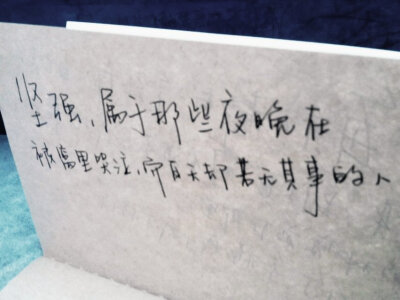 坚强，属于那些夜晚在
被窝里哭泣，而白天却若无其事的人